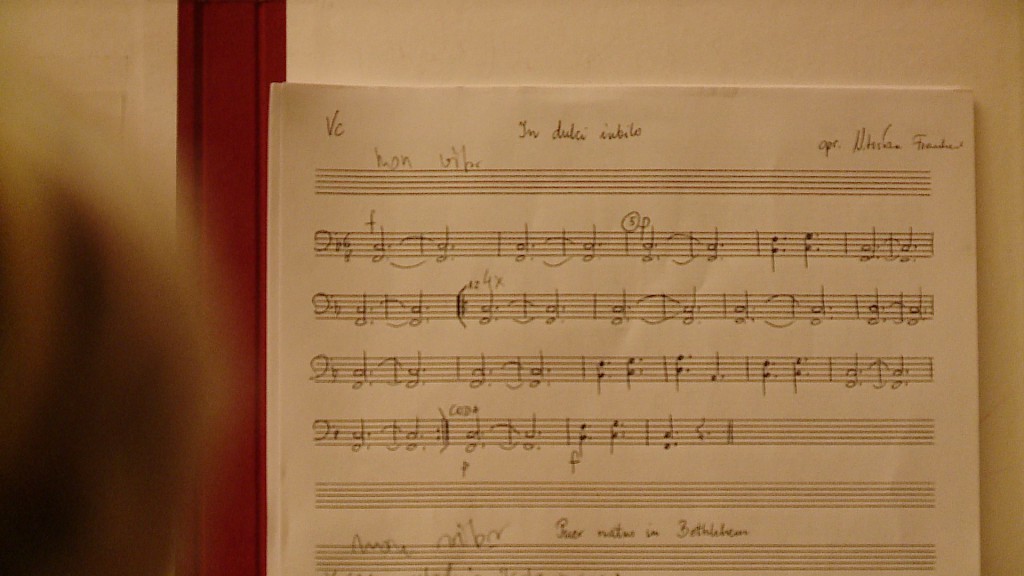 Vc
In dulci iubilo
opr.
non vibr
f
5 p
4x
CODA
p f
non vibr
Puer natus in Bethlehem